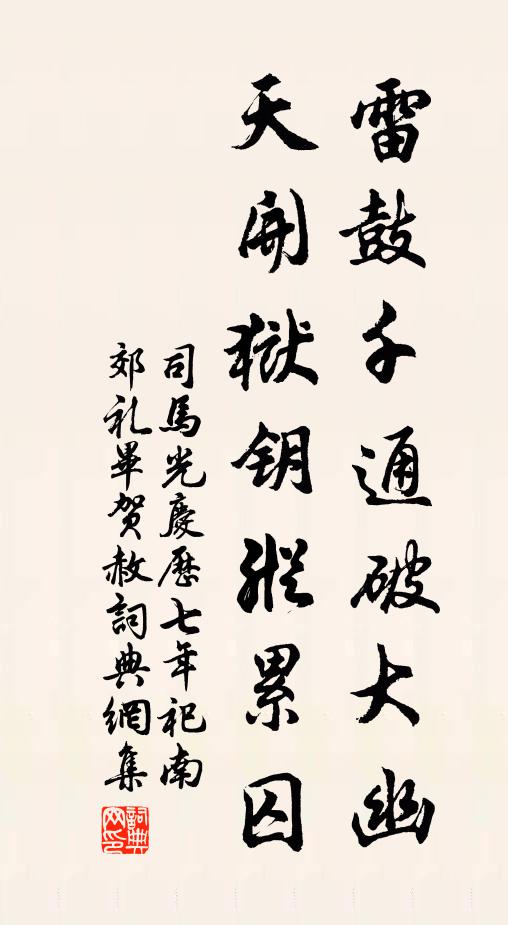 雷鼓千通破大幽
天開獄鈅縱累囚
司馬光慶歷七年祀南
郊礼畢賀赦詞典網集
詞典网印